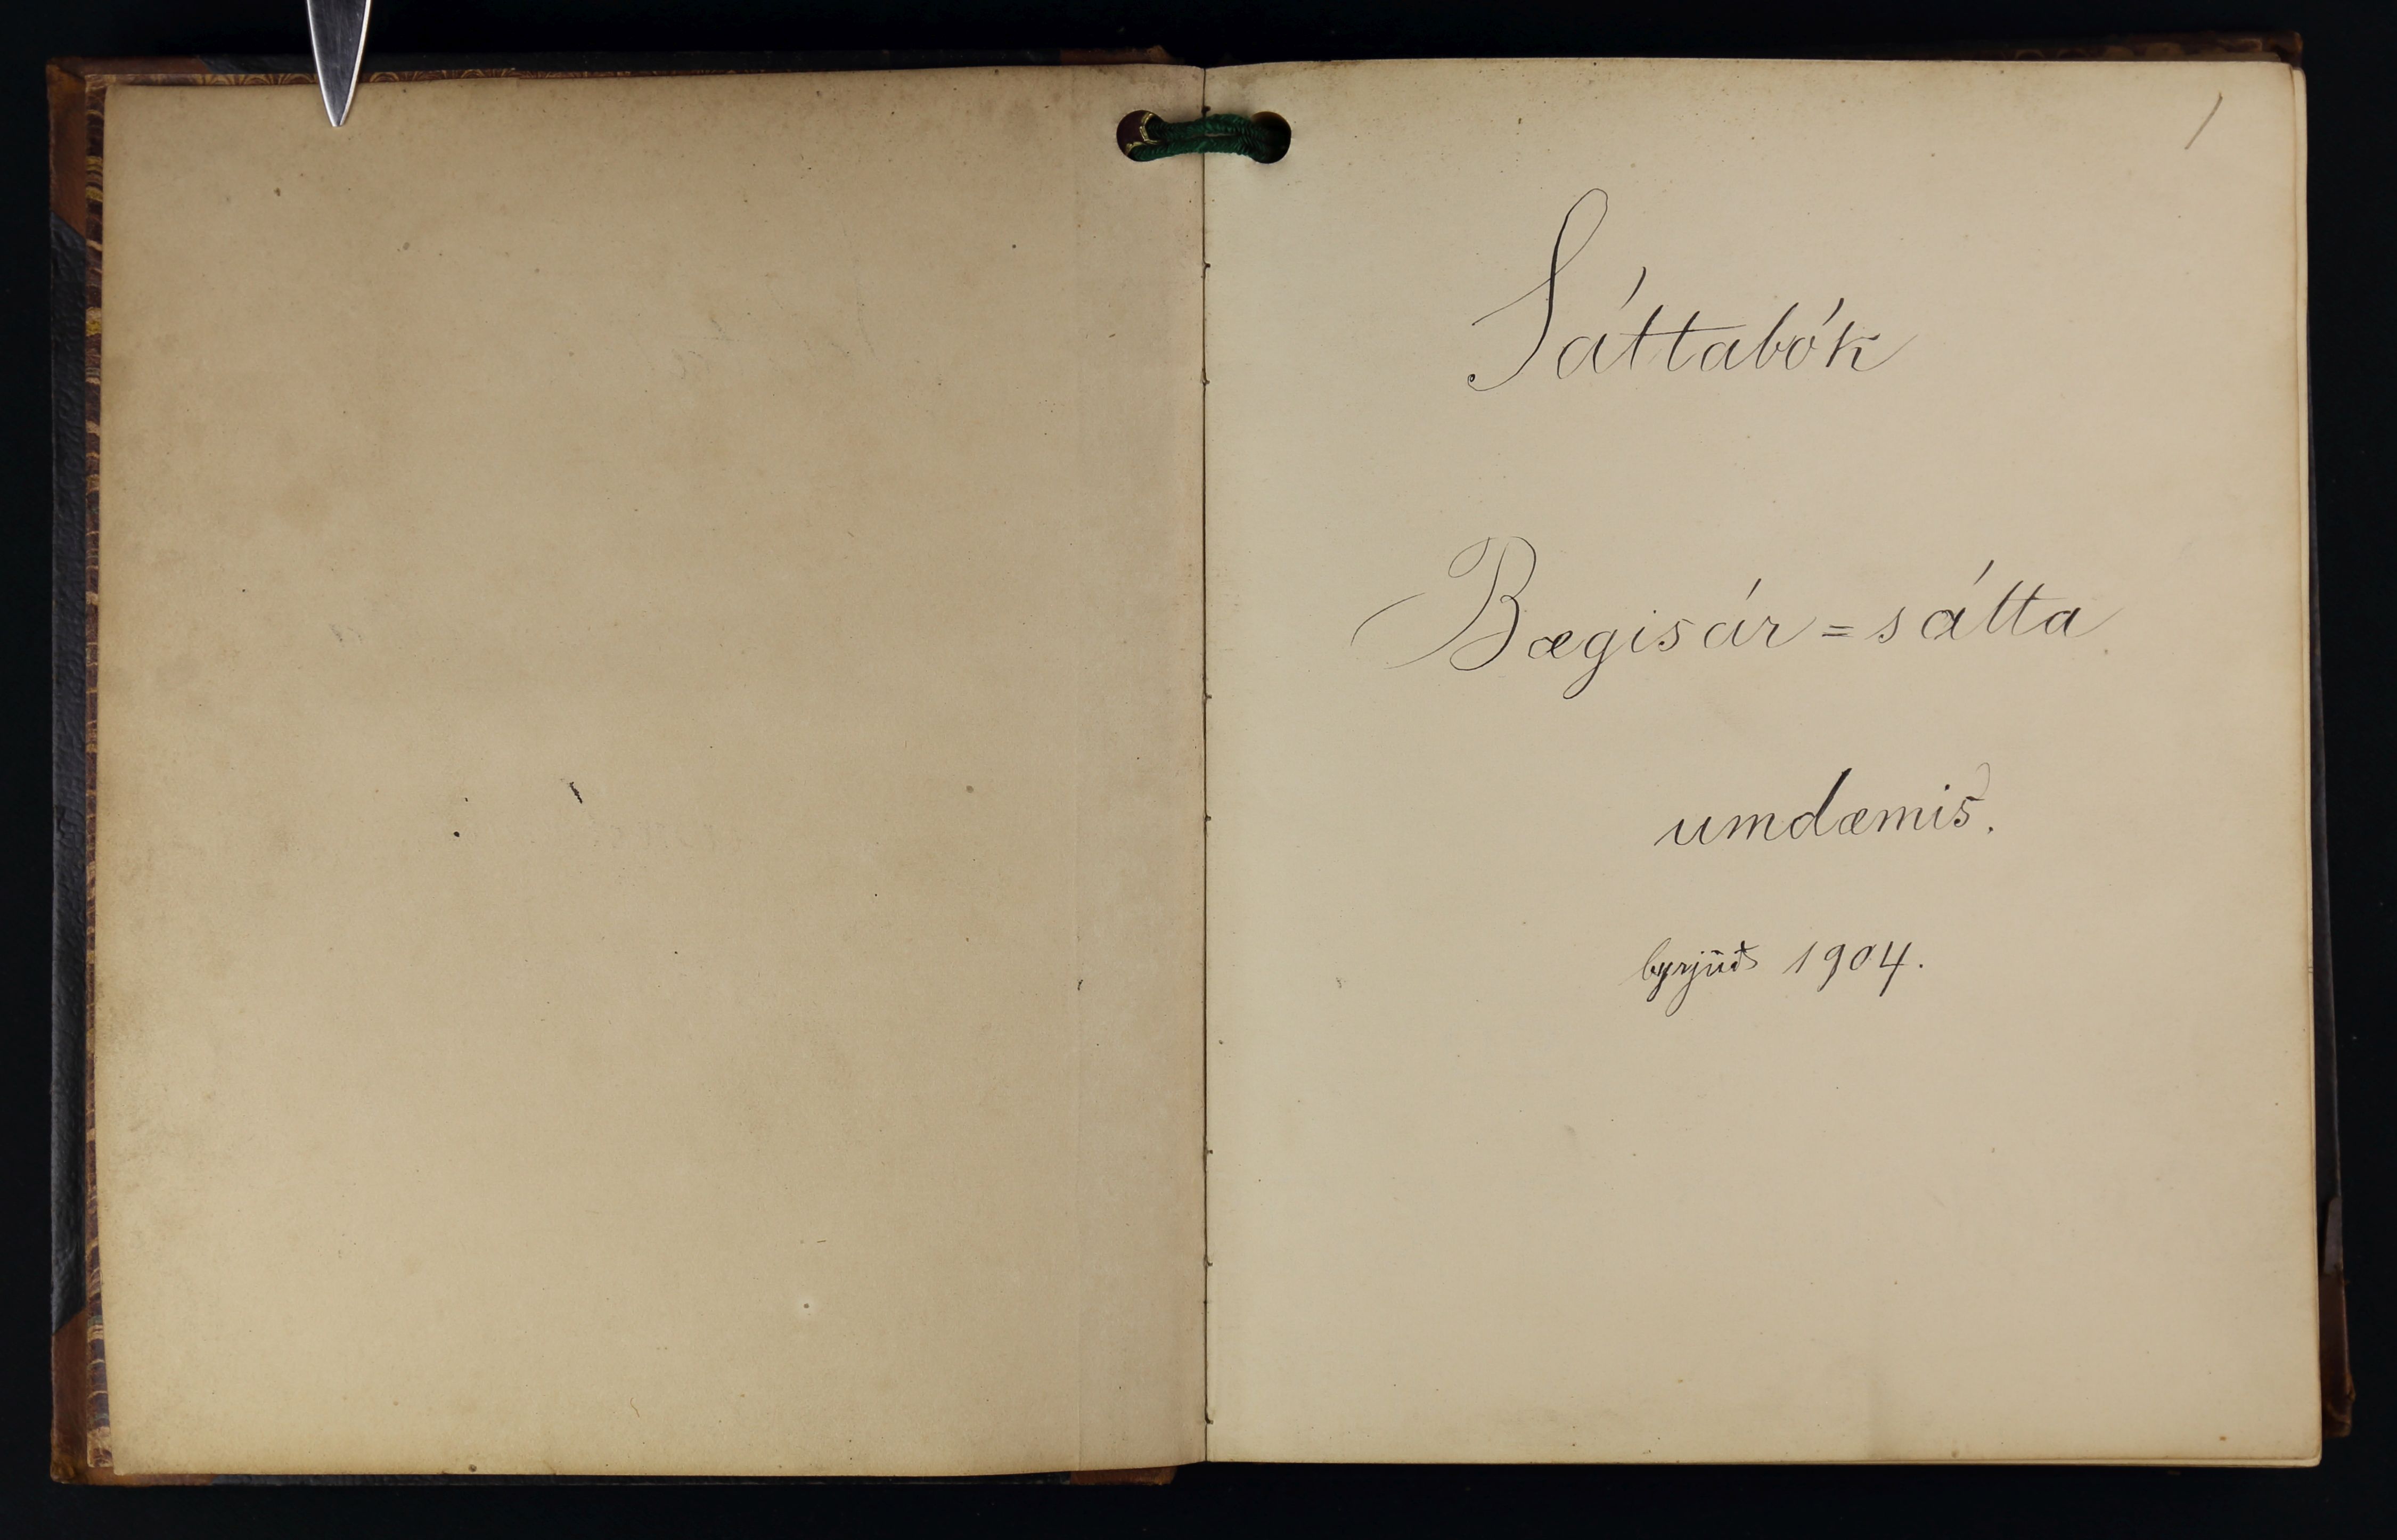 1
Sáttabók
Bægisár=sátta
umdæmis.
byrjuð 1904.